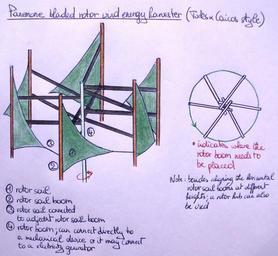 Panemone bladed rotor wind energy harvester (Turks & Caicos style)
① rotor sail
② rotor sail boom
③ rotor sail connected
to adjacent rotor sail boom
④ rotor boom; can connect directly to
a mechanical device or it may connect
to a electricity generator
* indicator where the
rotor boom needs to
be placed
Note: besides aligning the horizontal
rotor sail booms at different
heights; a rotor hub can also
be used
①
②
③
④